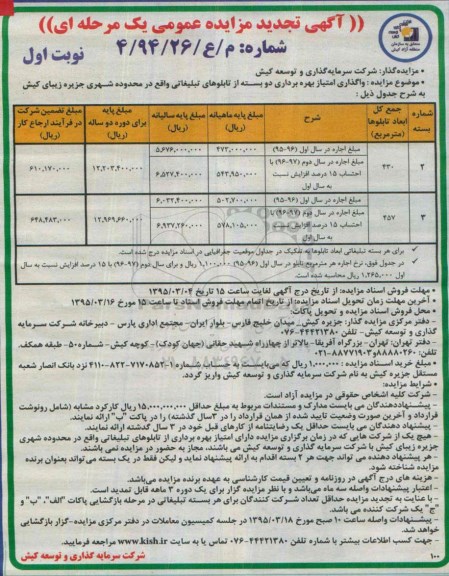 (( آگهی تجدید مزایده عمومی یک مرحله ای))
شماره: م/ع/۴/۹۴/۲۶
نوبت اول
متعلق به سازمان
منطقه آزاد کیش
• مزایده‌گذار: شرکت سرمایه‌گذاری و توسعه کیش
• موضوع مزایده : واگذاری امتیاز بهره برداری دو بسته از تابلوهای تبلیغاتی واقع در محدوده شهری جزیره زیبای کیش
به شرح جدول ذیل :
شماره بسته | جمع کل ابعاد تابلوها (مترمربع) | شرح | مبلغ پایه ماهیانه (ریال) | مبلغ پایه سالیانه (ریال) | مبلغ پایه برای دوره دو ساله (ریال) | مبلغ تضمین شرکت در فرآیند ارجاع کار (ریال)
۲ | ۴۳۰ | مبلغ اجاره در سال اول (۹۶-۹۵) | ۴۷۳,۰۰۰,۰۰۰ | ۵,۶۷۶,۰۰۰,۰۰۰ | ۱۲,۲۰۳,۴۰۰,۰۰۰ | ۶۱۰,۱۷۰,۰۰۰
مبلغ اجاره در سال دوم (۹۷-۹۶) با احتساب ۱۵ درصد افزایش نسبت به سال اول | ۵۴۳,۹۵۰,۰۰۰ | ۶,۵۲۷,۴۰۰,۰۰۰
۳ | ۴۵۷ | مبلغ اجاره در سال اول (۹۶-۹۵) | ۵۰۲,۷۰۰,۰۰۰ | ۶,۰۳۲,۴۰۰,۰۰۰ | ۱۲,۹۶۹,۶۶۰,۰۰۰ | ۶۴۸,۴۸۳,۰۰۰
مبلغ اجاره در سال دوم (۹۷-۹۶) با احتساب ۱۵ درصد افزایش نسبت به سال اول | ۵۷۸,۱۰۵,۰۰۰ | ۶,۹۳۷,۲۶۰,۰۰۰
✓ برای هر بسته تبلیغاتی ابعاد تابلوها به تفکیک در جداول موقعیت جغرافیایی در اسناد مزایده درج شده است.
✓ در جدول فوق، نرخ اجاره هر مترمربع تابلو در سال اول (۹۶-۹۵) ۱,۱۰۰,۰۰۰ ریال و برای سال دوم (۹۷-۹۶) با ۱۵ درصد افزایش نسبت به سال
اول ۱,۲۶۵,۰۰۰ ریال محاسبه شده است.
• مهلت فروش اسناد مزایده: از تاریخ درج آگهی لغایت ساعت ۱۵ تاریخ ۱۳۹۵/۰۳/۰۴
• آخرین مهلت زمان تحویل اسناد مزایده: از تاریخ اتمام مهلت فروش اسناد تا ساعت ۱۵ مورخ ۱۳۹۵/۰۳/۱۶
• محل فروش اسناد مزایده و تحویل پاکات:
- دفتر مرکزی مزایده گذار: جزیره کیش_ میدان خلیج فارس- بلوار ایران- مجتمع اداری پارس - دبیرخانه شرکت سرمایه
گذاری و توسعه کیش- تلفن ۴۴۴۲۱۳۸۰-۰۷۶
- دفتر تهران: تهران- بزرگراه آفریقا- بالاتر از چهارراه شهید حقانی (جهان کودک)- کوچه کیش- شماره۵۰- طبقه همکف.
تلفن: ۸۸۸۸۰۲۶۰و ۸۸۷۷۱۹۰۳-۰۲۱
• مبلغ خرید اسناد مزایده : ۱,۰۰۰,۰۰۰ ریال که می‌بایست به حساب شماره ۱-۷۱۷۰۸۵۲-۸۲۲-۴۱۱۰ نزد بانک انصار شعبه
مستقل جزیره کیش به نام شرکت سرمایه گذاری و توسعه کیش واریز گردد.
• شرایط مزایده:
- شرکت کلیه اشخاص حقوقی در مزایده آزاد است.
- پیشنهاددهندگان می بایست مدارک و مستندات مربوط به مبلغ حداقل ۱۵,۰۰۰,۰۰۰,۰۰۰ریال کارکرد مشابه (شامل رونوشت
قرارداد و آخرین صورت وضعیت تایید شده از همان قرارداد را در ۳سال گذشته) را در پاکت "ب" ارائه نمایند.
- پیشنهاد دهندگان می بایست حداقل یک رضایتنامه از کارهای قبل خود در ۳ سال گذشته ارائه نمایند.
- هیچ یک از شرکت هایی که در زمان برگزاری مزایده دارای امتیاز بهره برداری از تابلوهای تبلیغاتی واقع در محدوده شهری
جزیره زیبای کیش با شرکت سرمایه گذاری و توسعه کیش می باشند، مجاز به حضور در مزایده نمی باشند.
- هر پیشنهاد دهنده می تواند جهت هر ۲ بسته اقدام به ارائه پیشنهاد نماید و لیکن فقط در یک بسته می‌تواند بعنوان برنده
مزایده شناخته شود.
- هزینه های درج آگهی در روزنامه و تعیین قیمت کارشناسی به عهده برنده مزایده می‌باشد.
- اعتبار پیشنهادات واصله سه ماه می‌باشد و با نظر مزایده گزار برای یک دوره ۳ ماهه قابل تمدید است.
- با عنایت به تجدید مزایده حداقل تعداد شرکت کنندگان برای هر بسته تبلیغاتی در مرحله بازگشایی پاکات "الف"، "ب" و
"ج" یک شرکت کننده می باشد.
- پیشنهادات واصله ساعت ۱۰ صبح مورخ ۱۳۹۵/۰۳/۱۸ در جلسه کمیسیون معاملات در دفتر مرکزی مزایده-گزار بازگشایی
خواهد شد.
- جهت کسب اطلاعات بیشتر با شماره تلفن ۴۴۴۲۱۳۸۰-۰۷۶ تماس یا به سایت www.kish.ir مراجعه فرمایید.
شرکت سرمایه گذاری و توسعه کیش
۱۰۰